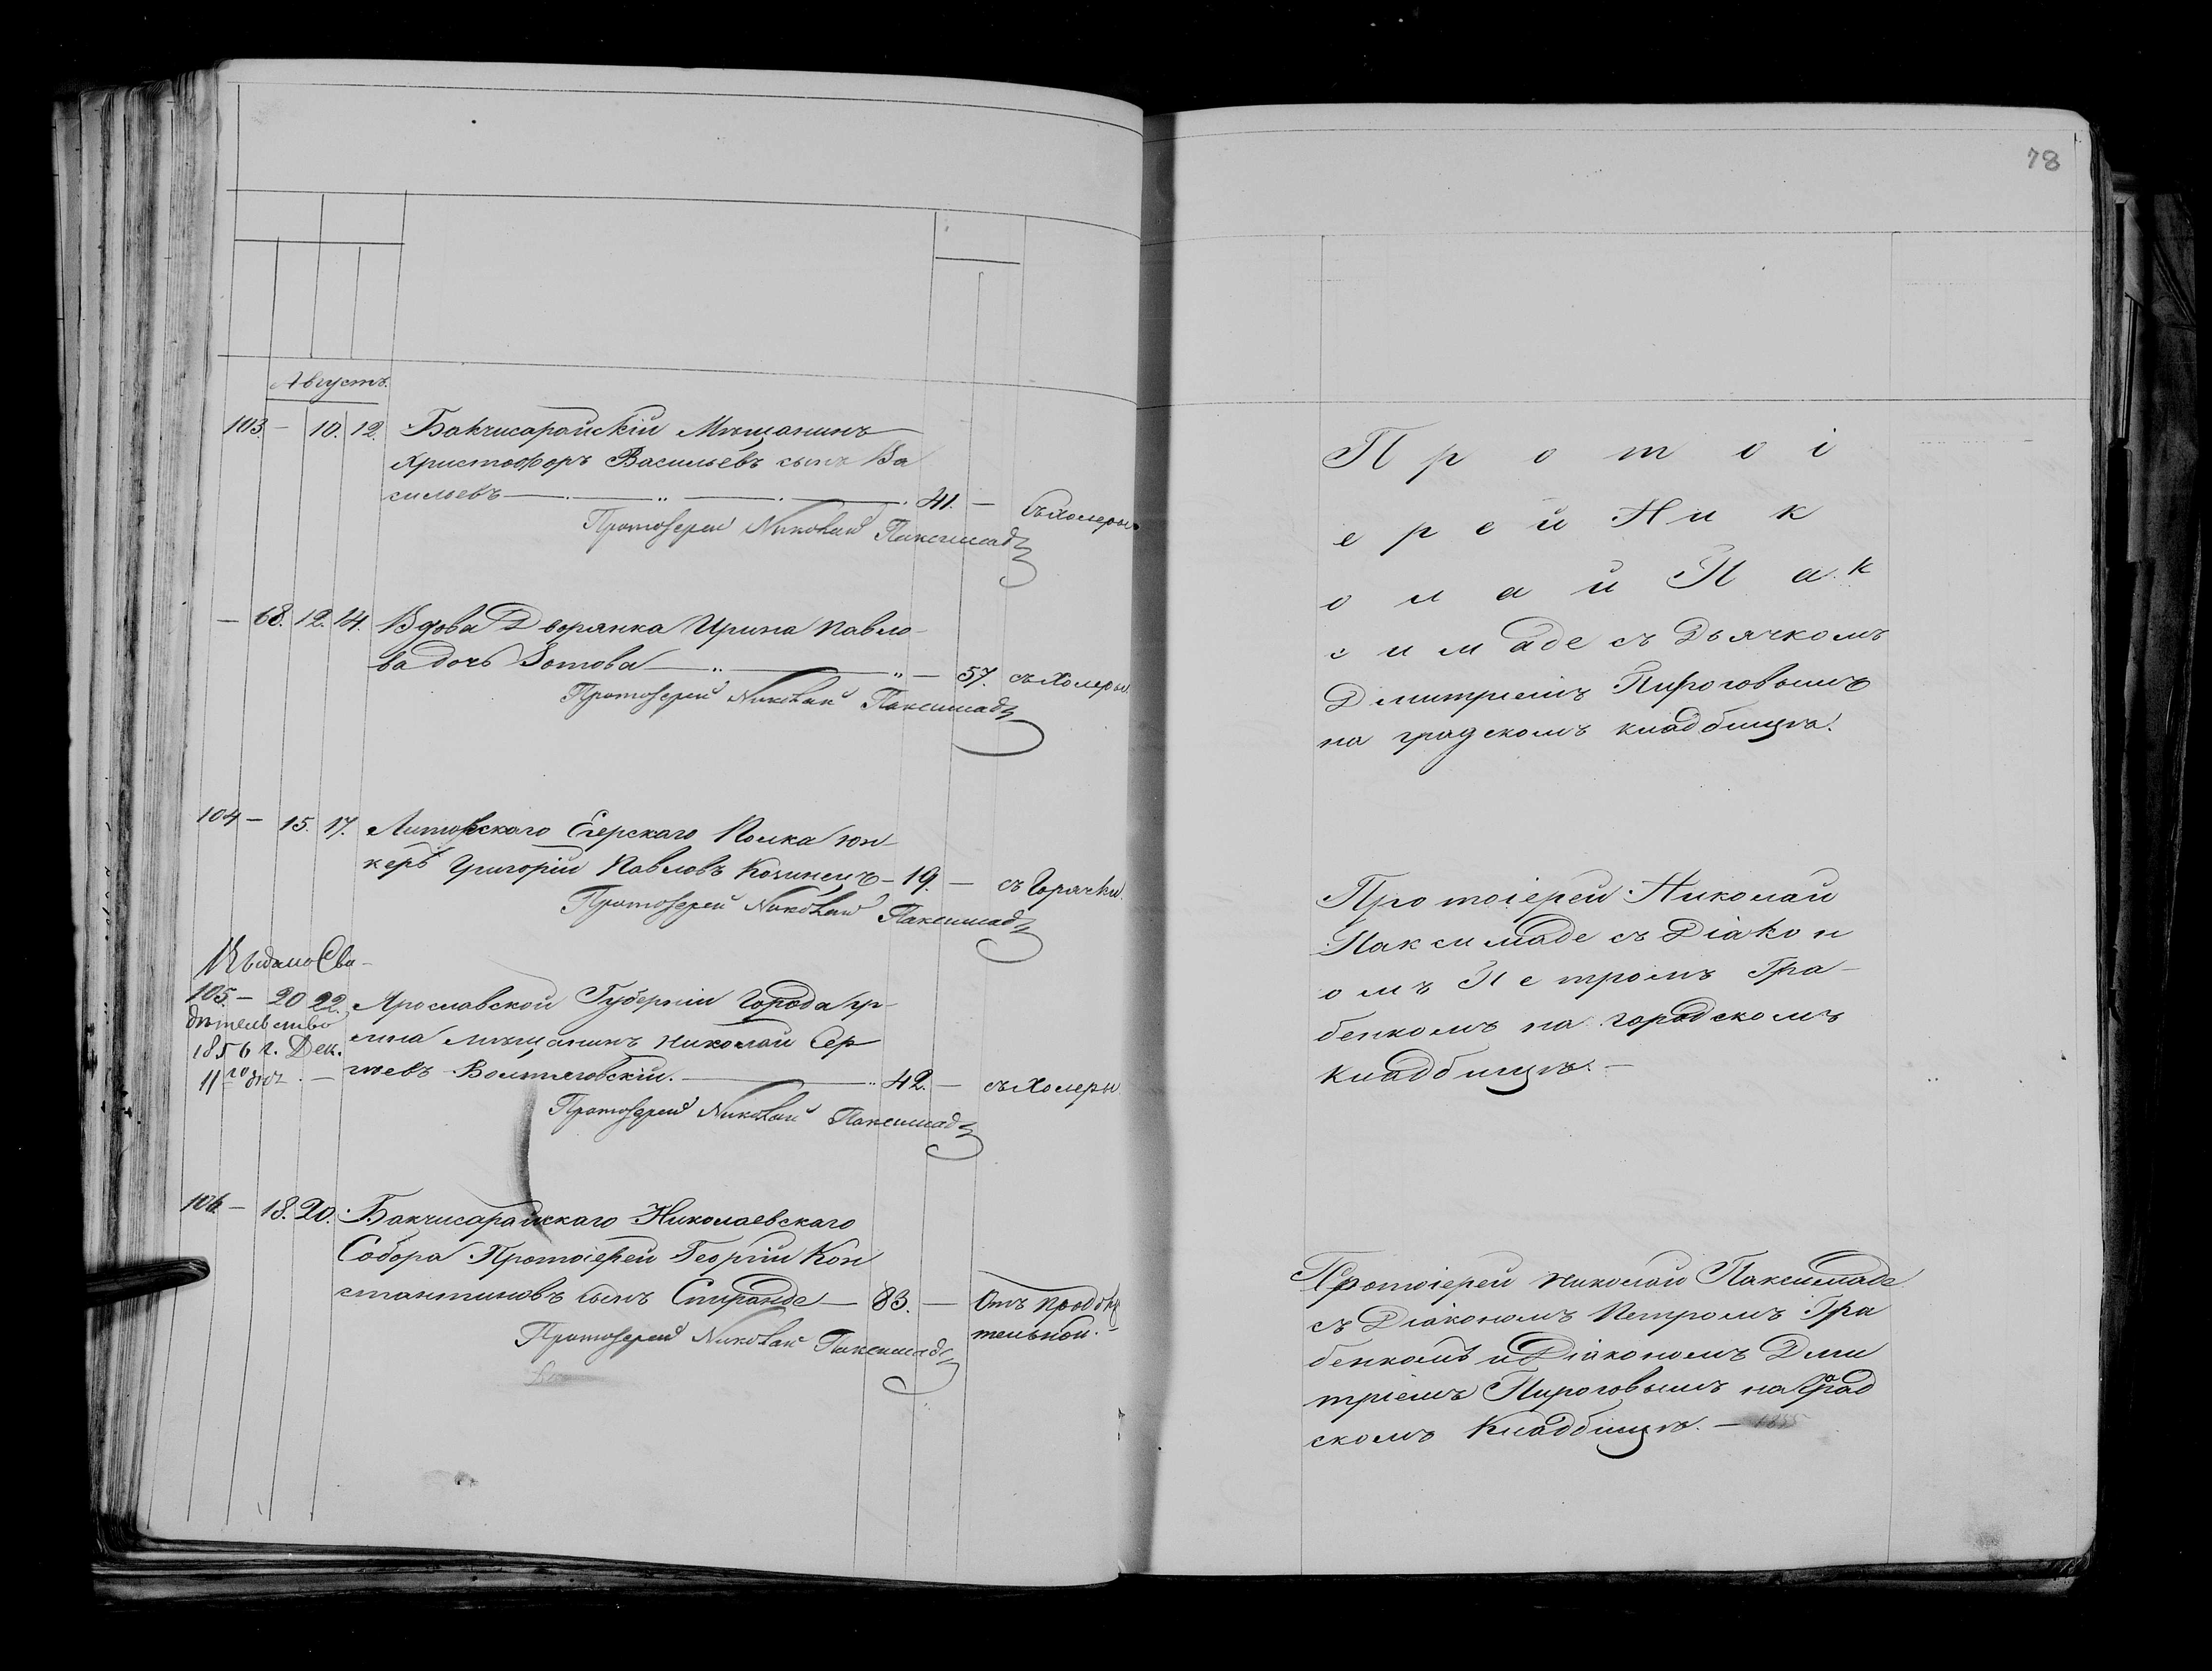 Августъ.
103. — 10. 12. Бакчисарайскій Мѣщанинъ
Христофоръ Васильевъ сынъ Ва
сильевъ — 41. — съ холеры
Протоіерей Николай Паксимаде
— 68. 12. 14. Вдова Дворянка Ирина Павло-
ва дочь Зотова — 57. съ Холеры.
Протоіерей Николай Паксимаде
104 — 15. 17. Литовскаго Егерскаго Полка юн
керъ Григорій Павловъ — 19. — съ Горячки.
Протоіерей Николай Паксимаде
Выдано Сви-
105. — 20 22. Ярославской Губерніи Города
дѣтельство
мѣщанинъ Николай Сер
1856 г. Дек.
гѣевъ — 42. — съ Холеры.
11го дня. —
Протоіерей Николай Паксимаде
106 — 18. 20. Бакчисарайскаго Николаевскаго
Собора Протоіерей Георгій Кон
стантиновъ сынъ Спиранде — 83. — Отъ
тельной. —
Протоіерей Николай Паксимаде
78
П р о т о і
е р е й Н и к
о л а й П а к
с и м аде съ Дьячкомъ
Дмитріемъ Пироговымъ
на градскомъ кладбищѣ.
Протоіерей Николай
Паксимаде съ Діакон
омъ Петромъ Гра-
бенкомъ на городскомъ
Кладбищѣ. —
Протоіерей Николай Паксимаде
съ Діакономъ Петромъ Гра
бенкомъ и Діакономъ Дми
тріемъ Пироговымъ на Град
скомъ Кладбищѣ. — 1855